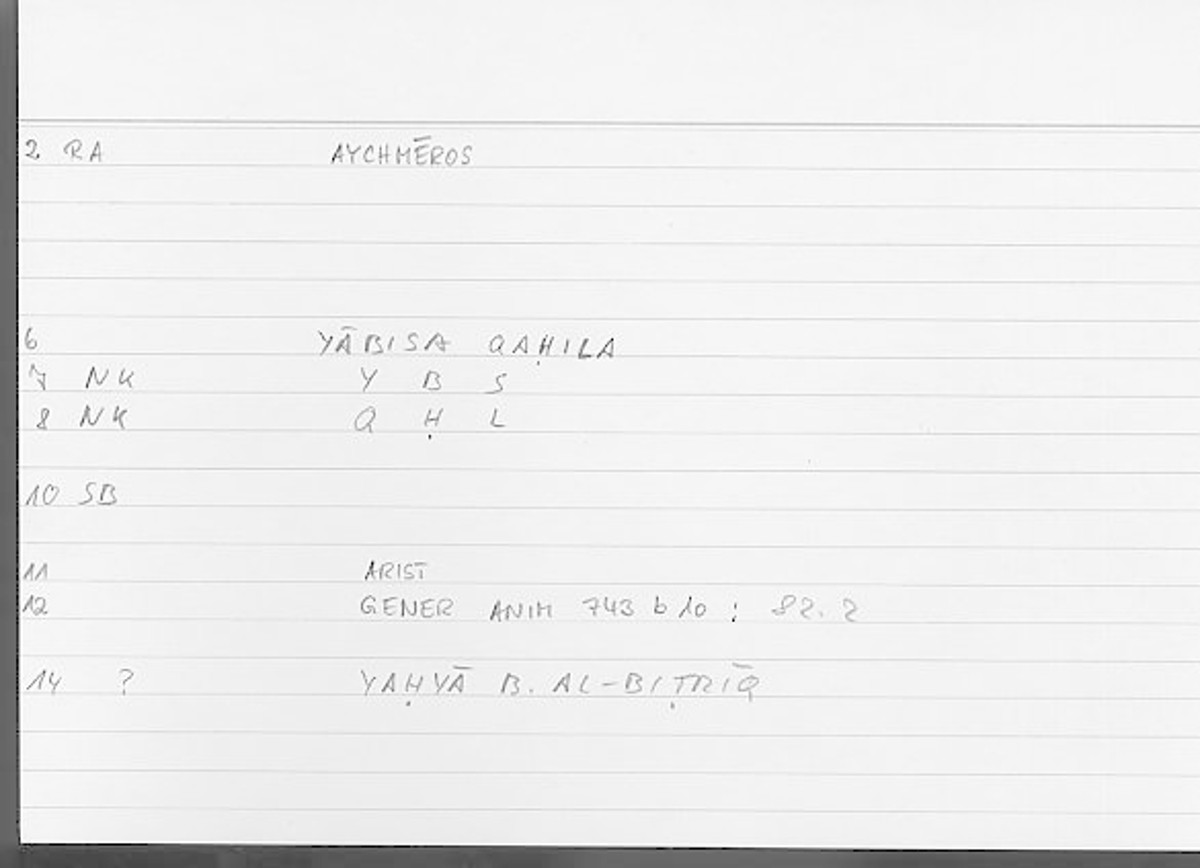 2 RA AYCHMĒROS
6 YĀBISA QAḤILA
7 NK Y B S
8 NK Q Ḥ L
10 SB
11 ARIST
12 GENER ANIM 743 b 10 : 82.2
14 ? YAḤYĀ B. AL-BIṬRĪQ